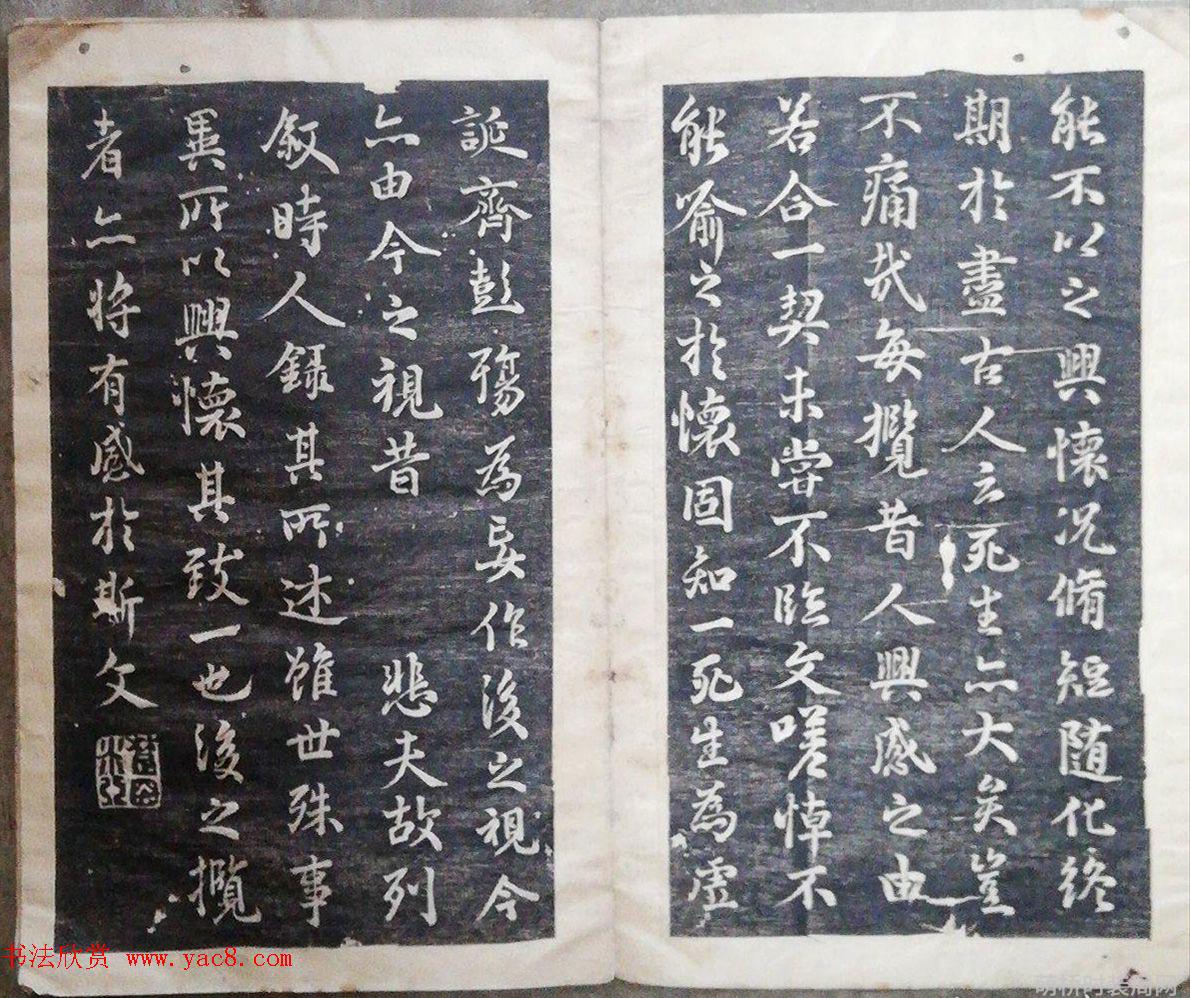 能不以之興懷况脩短随化終
期於盡古人云死生亦大矣豈
不痛哉每攬昔人興感之由
若合一契未甞不臨文嗟悼不
能喻之於懷固知一死生為虚
誕齊彭殤為妄作後之視今
亦由今之視昔 悲夫故列
叙時人録其所述雖世殊事
異所以興懷其致一也後之攬
者亦将有感於斯文
书法欣赏 www.yac8.com